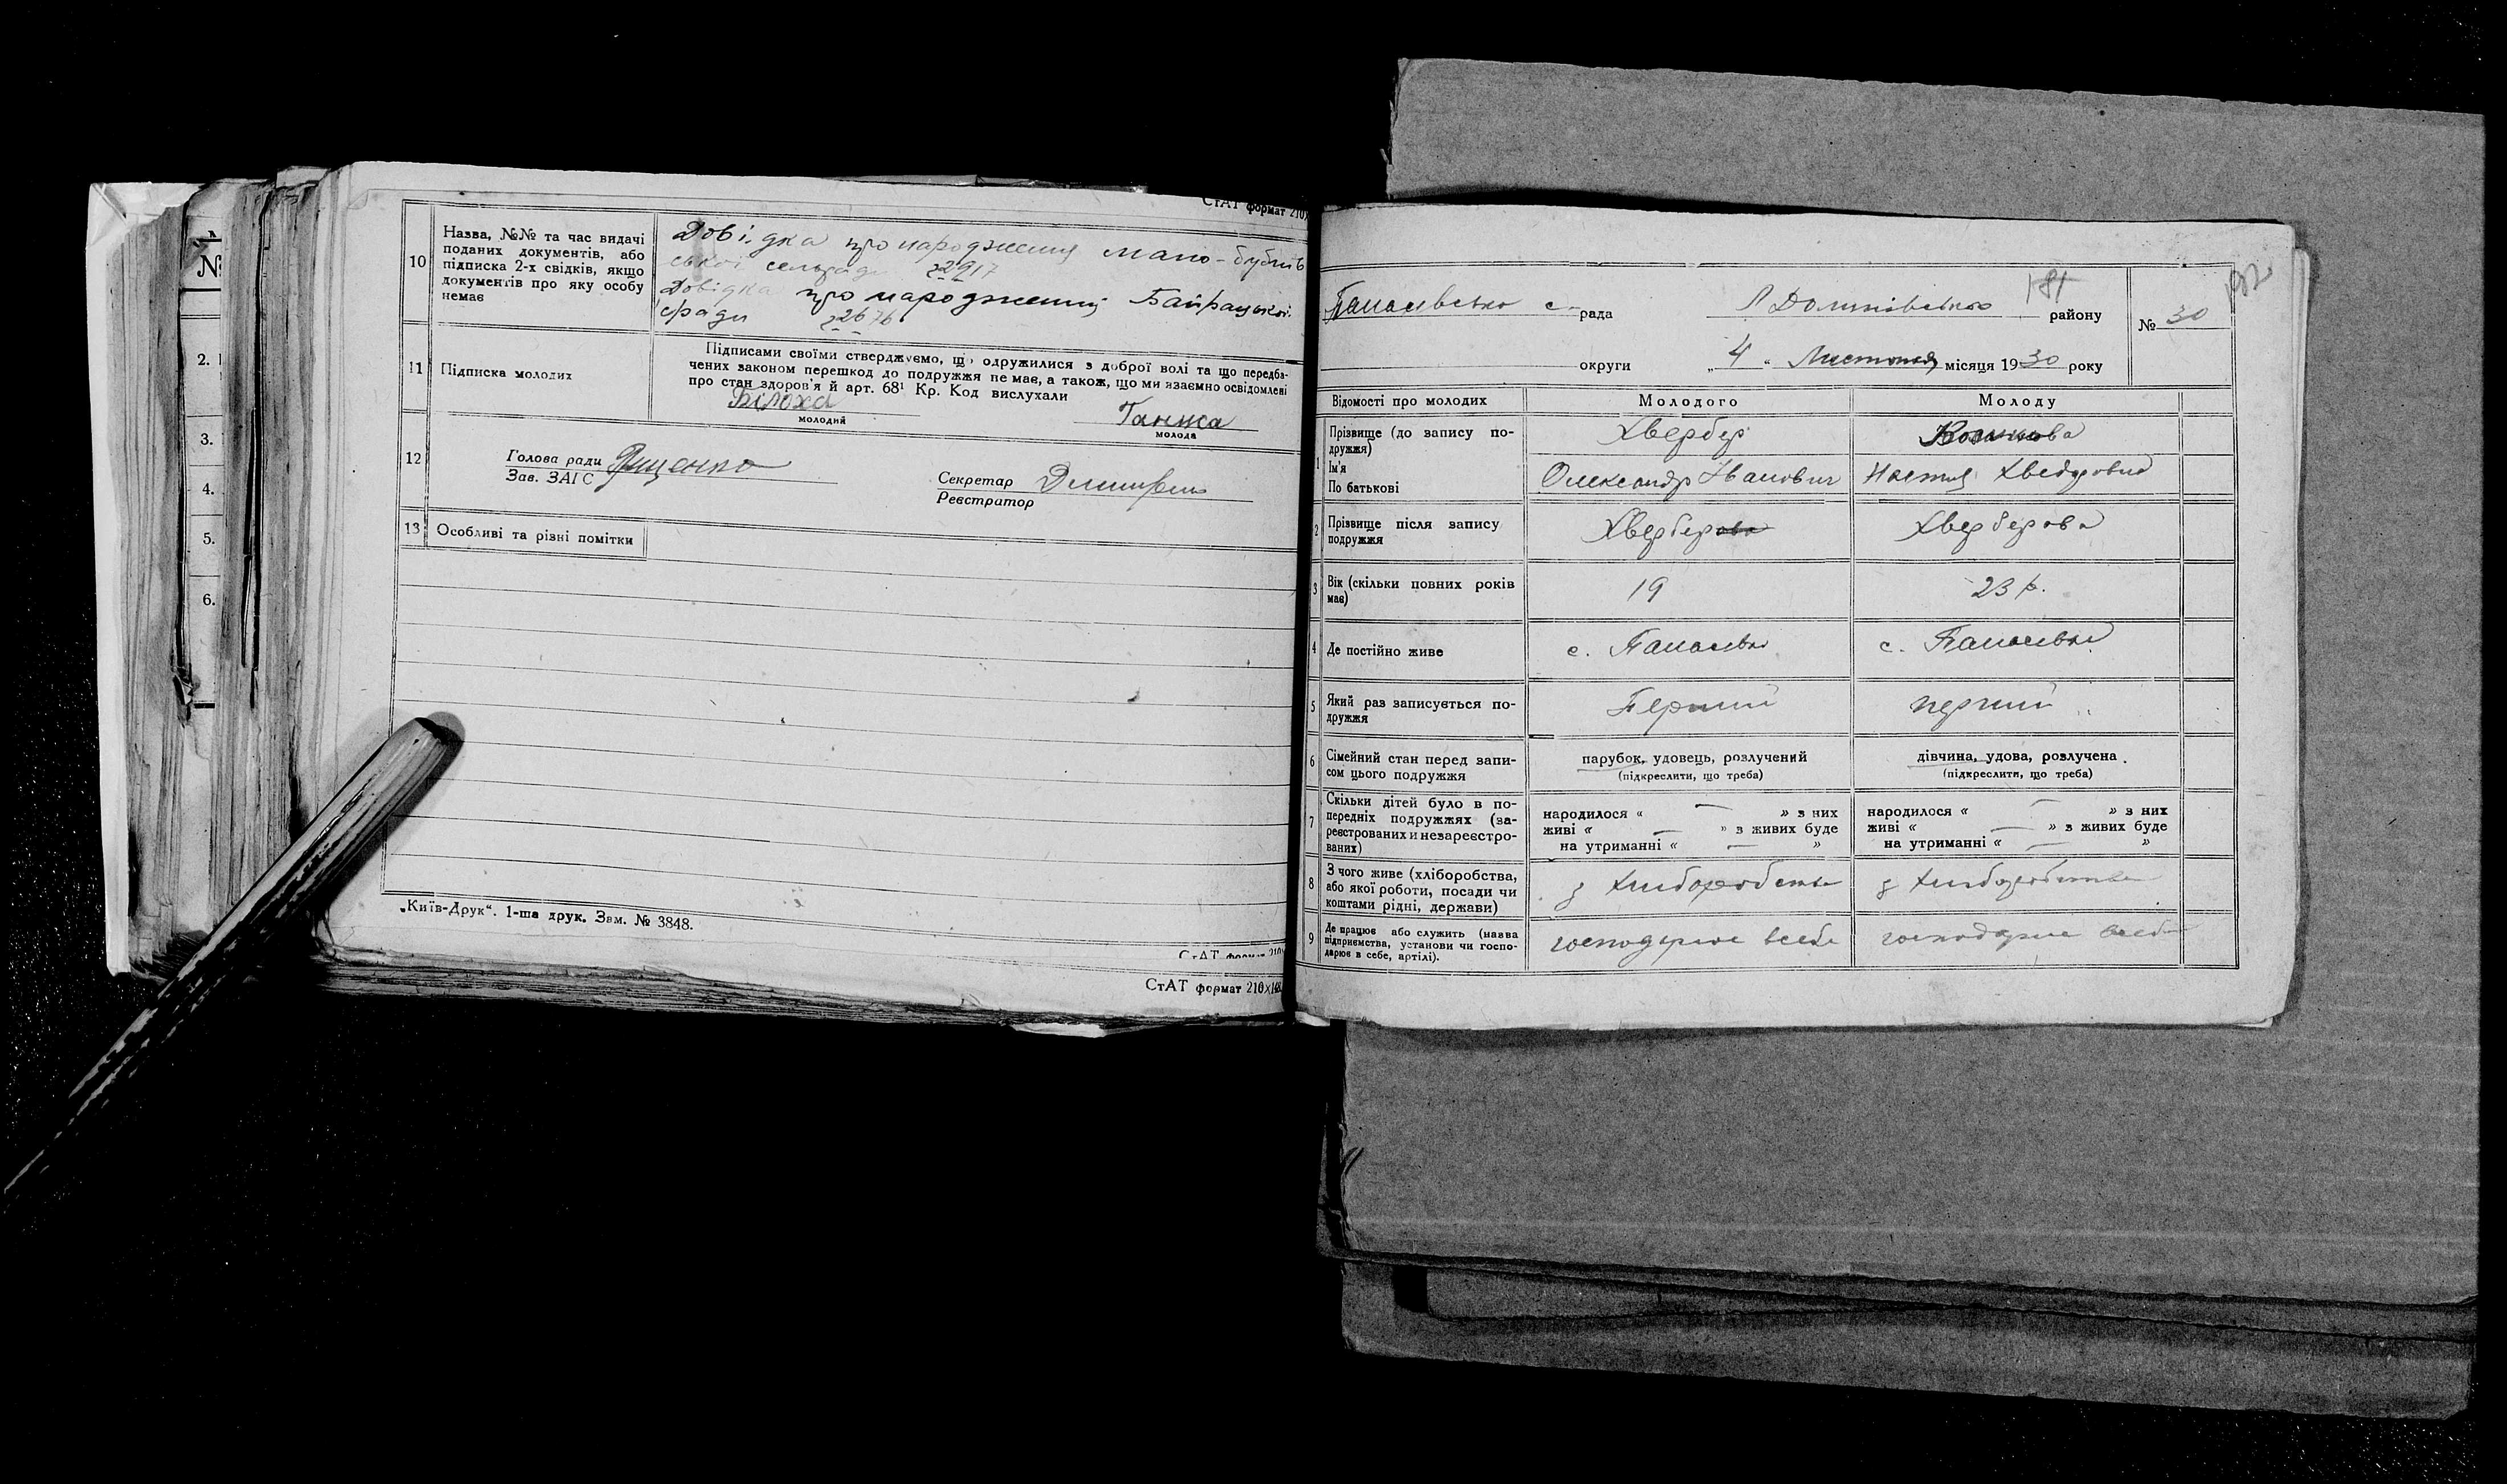 СтАТ формат 210х
10
Назва, №№ та час видачі
поданих документів, або
підписка 2-х свідків, якщо
документів про яку особу
немає
Довідка про народження мало-бубнів
ської сельради 22917
Довідка про народження Байрацької
с/ради 22676
11
Підписка молодих
Підписами своїми стверджуємо, що одружилися з доброї волі та що передба-
чених законом перешкод до подружжя не має, а також, що ми взаємно освідомлені
про стан здоров'я й арт. 68¹ Кр. Код вислухали
Білоха
молодий
Ганжа
молода
12
Голова ради
Зав. ЗАГС
Секретар
Реєстратор
13
Особливі та різні помітки
„Київ-Друк“. 1-ша друк. Зам. № 3848.
СтАТ формат 210
СтАТ формат 210х148
№
2.
3.
4.
5.
6.
Панасівська с- рада
району
181
182
№ 30
округи
„ 4 “ Листопад місяця 1930 року
Відомості про молодих
Молодого
Молоду
1
Прізвище (до запису по-
дружжя)
Ім'я
По батькові
Хвербер
Олександр Іванович
Настя Хведоровна
2
Прізвище після запису
подружжя
Хвербер
Хверберова
3
Вік (скільки повних років
має)
19
23 р.
4
Де постійно живе
с. Панасівка
с. Панасівка
5
Який раз записується по-
дружжя
Перший
перший
6
Сімейний стан перед запи-
сом цього подружжя
парубок, удовець, розлучений
(підкреслити, що треба)
дівчина, удова, розлучена
(підкреслити, що треба)
7
Скільки дітей було в по-
передніх подружжях (за-
реєстрованих и незареєстро-
ваних)
народилося « — » з них
живі « — » з живих буде
на утриманні « — »
народилося « — » з них
живі « — » з живих буде
на утриманні « — »
8
З чого живе (хліборобства,
або якої роботи, посади чи
коштами рідні, держави)
з хліборобства
з хліборобства
9
Де працює або служить (назва
підприємства, установи чи госпо-
дарює в себе, артілі).
господарює в себе
господарює в себе